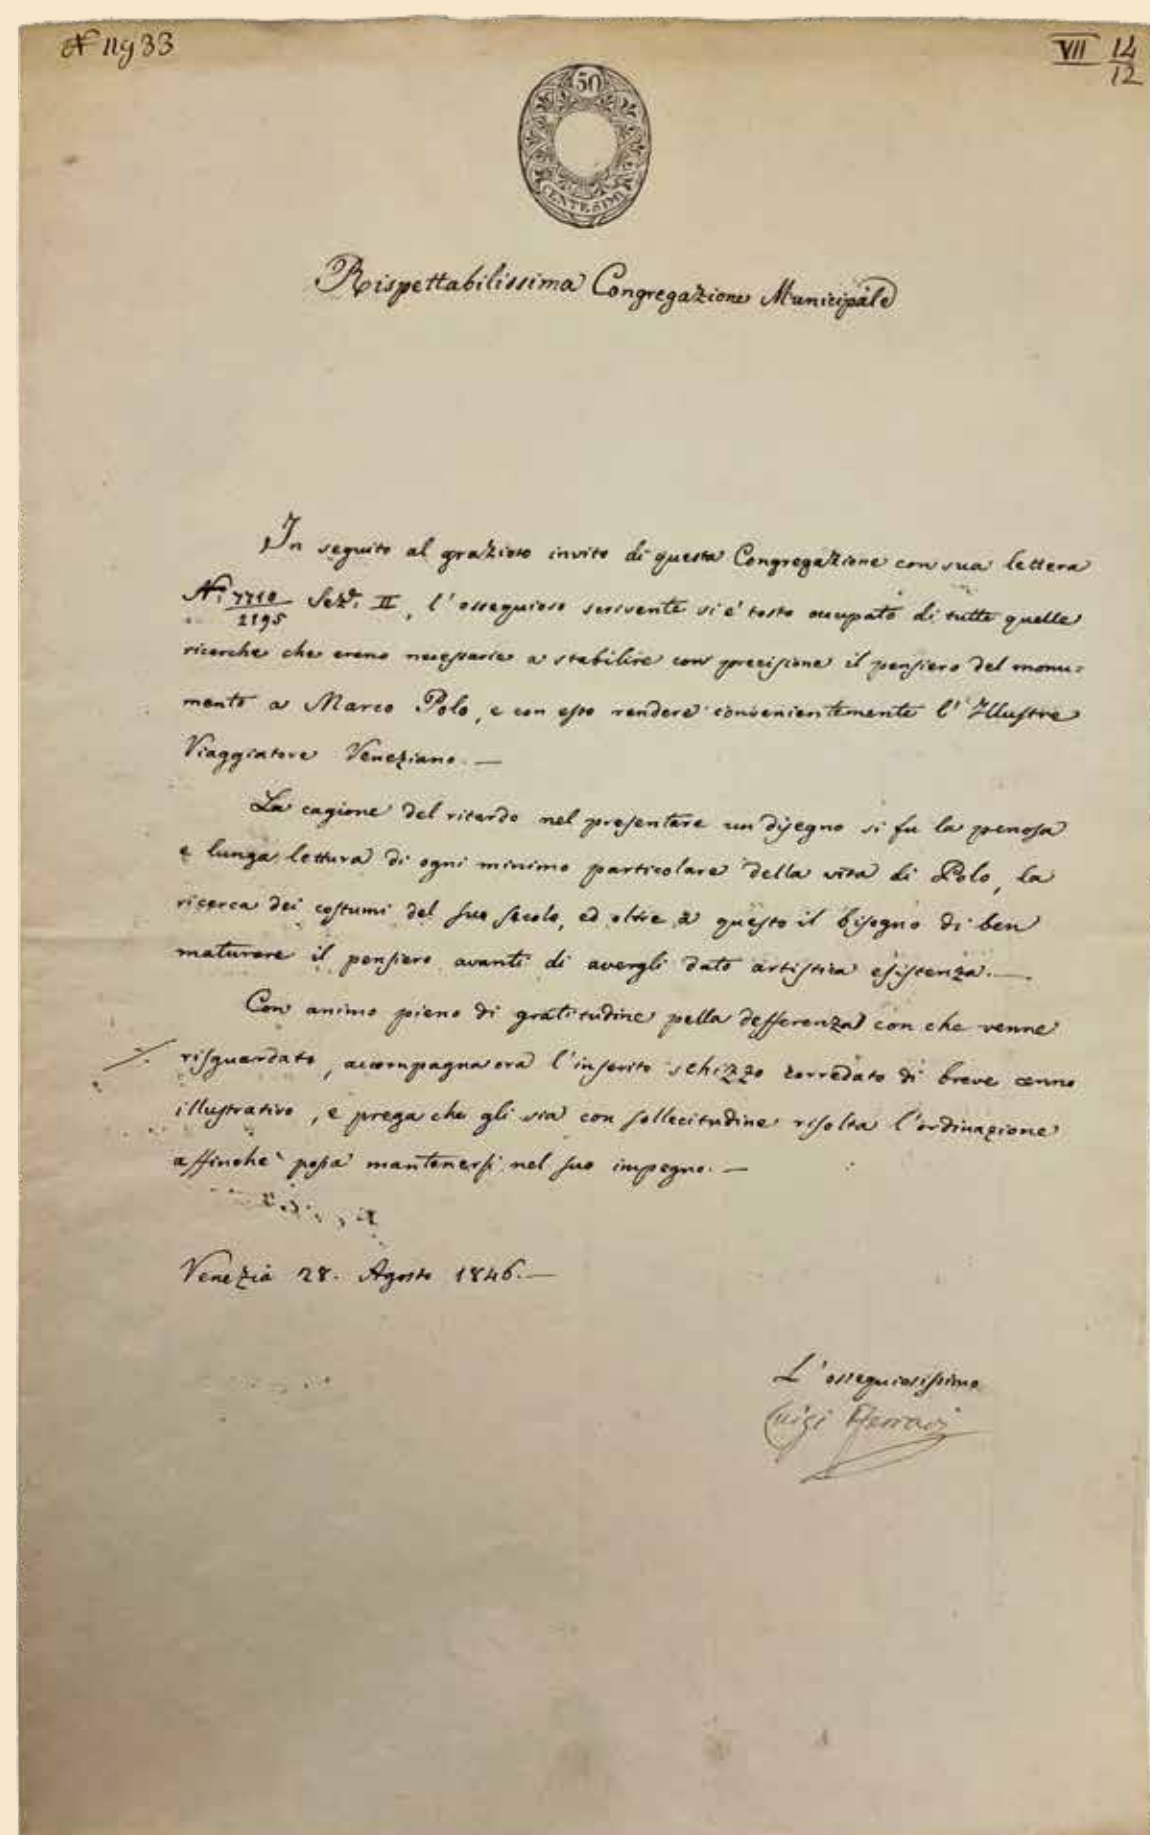 N 11933
VII 14/12
50
CENTESIMI
Rispettabilissima Congregazione Municipale
In seguito al grazioso invito di questa Congregazione con sua lettera
N.° 7710/2195 Sez.e II, l'ossequioso scrivente si è tosto occupato di tutte quelle
ricerche che erano necessarie a stabilire con precisione il pensiero del monu=
mento a Marco Polo, e con esso rendere convenientemente l'Illustre
Viaggiatore Veneziano. —
La cagione del ritardo nel presentare un disegno si fu la penosa
e lunga lettura di ogni minimo particolare della vita di Polo, la
ricerca dei costumi del suo secolo, ed oltre a questo il bisogno di ben
maturare il pensiero avanti di avergli dato artistica esistenza. —
Con animo pieno di gratitudine pella defferenza con che venne
risguardato, accompagna ora l'inserito schizzo corredato di breve cenno
illustrativo, e prega che gli sia con sollecitudine risolta l'ordinazione
affinchè possa mantenersi nel suo impegno. —
Venezia 28. Agosto 1846. —
L'ossequiosissimo
Luigi Ferrari